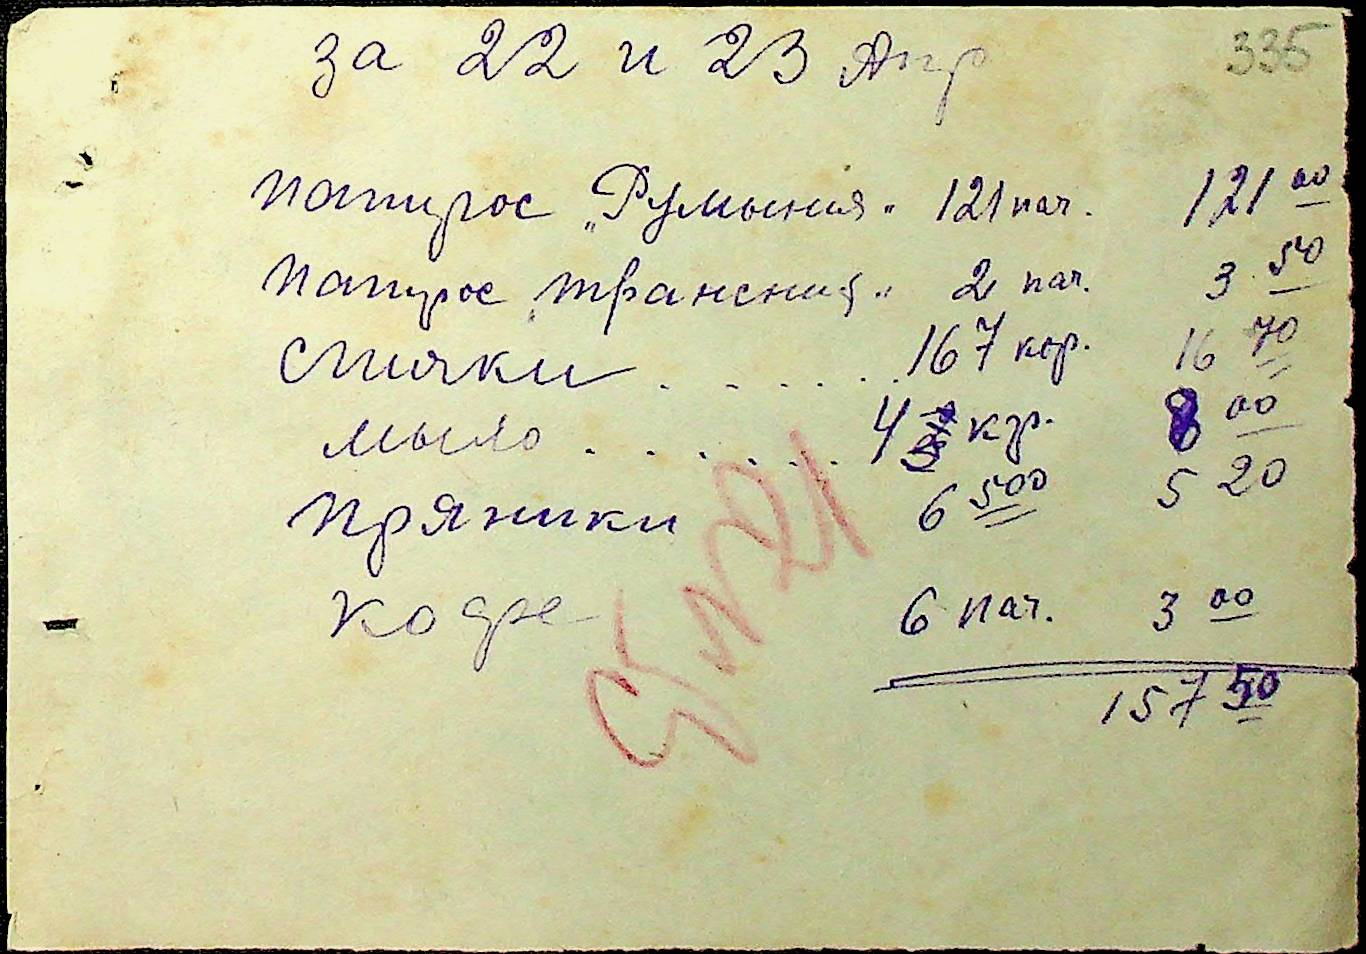 335
за 22 и 23 Апр
папирос „Румыния“ 121 пач. 121 00
папирос „трансния“ 2 пач. 3 50
спички . . . . . . 167 кор. 16 70
мыло . . . . . . . 4 кр. 8 00
пряники 6 500 5 20
кофе 6 пач. 3 00
157 50
N 21